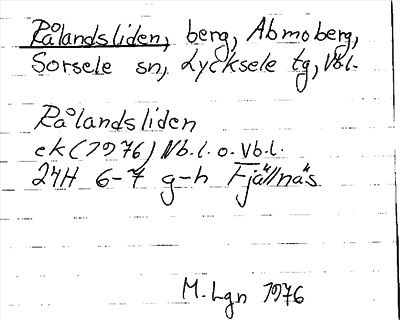 Rålandsliden, berg, Abmoberg,
Sorsele sn, Lycksele tg, Vbl.
Rålandsliden
ek (1976) Nb.l. o. Vb.l.
24H 6-7 g-h Fjällnäs
M. Lgn 1976